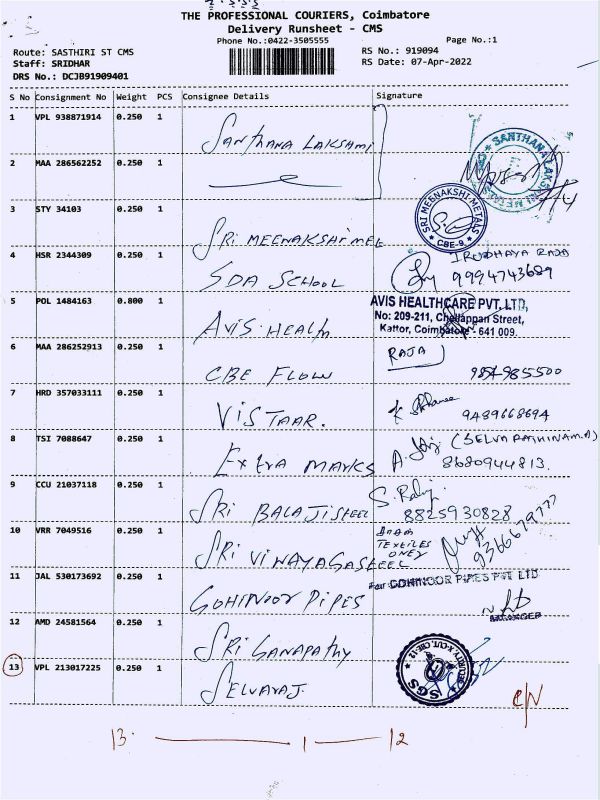 THE PROFESSIONAL COURIERS, Coimbatore
Delivery Runsheet - CMS
Phone No.:0422-3505555
Page No.:1
Route: SASTHIRI ST CMS
Staff: SRIDHAR
DRS No.: DCJB91909401
RS No.: 919094
RS Date: 07-Apr-2022
S No Consignment No Weight PCS Consignee Details Signature
1 VPL 938871914 0.250 1 SANTHANA LAKSHMI
2 MAA 286562252 0.250 1
SANTHANA LAKSHMI METALS
3 STY 34103 0.250 1 SRI MEENAKSHI MEL
SRI MEENAKSHI METALS
CBE-9
4 HSR 2344309 0.250 1 SDA SCHOOL
IRUDHAYA RAJA
9994743689
5 POL 1484163 0.800 1 AVIS HEALTH
AVIS HEALTHCARE PVT. LTD,
No: 209-211, Chellappan Street,
Kattor, Coimbatore - 641 009.
6 MAA 286252913 0.250 1 CBE FLOW
RAJA
7 HRD 357033111 0.250 1 VISTAAR.
9489668694
8 TSI 7088647 0.250 1 Extra MARKS
(SELVA RATHINAM.A)
8680944813.
9 CCU 21037118 0.250 1 SRI BALAJI STEEL
8825930828
10 VRR 7049516 0.250 1 SRI VINAYAGA STEEL
TEXTILES
ONLY
9366679777
11 JAL 530173692 0.250 1 GOHINOOR PIPES
For GOHINOOR PIPES PVT LTD
MANAGER
12 AMD 24581564 0.250 1 SRI GANAPATHY
13 VPL 213017225 0.250 1 SELVARAJ.
SGS
C/N
13. 1 12